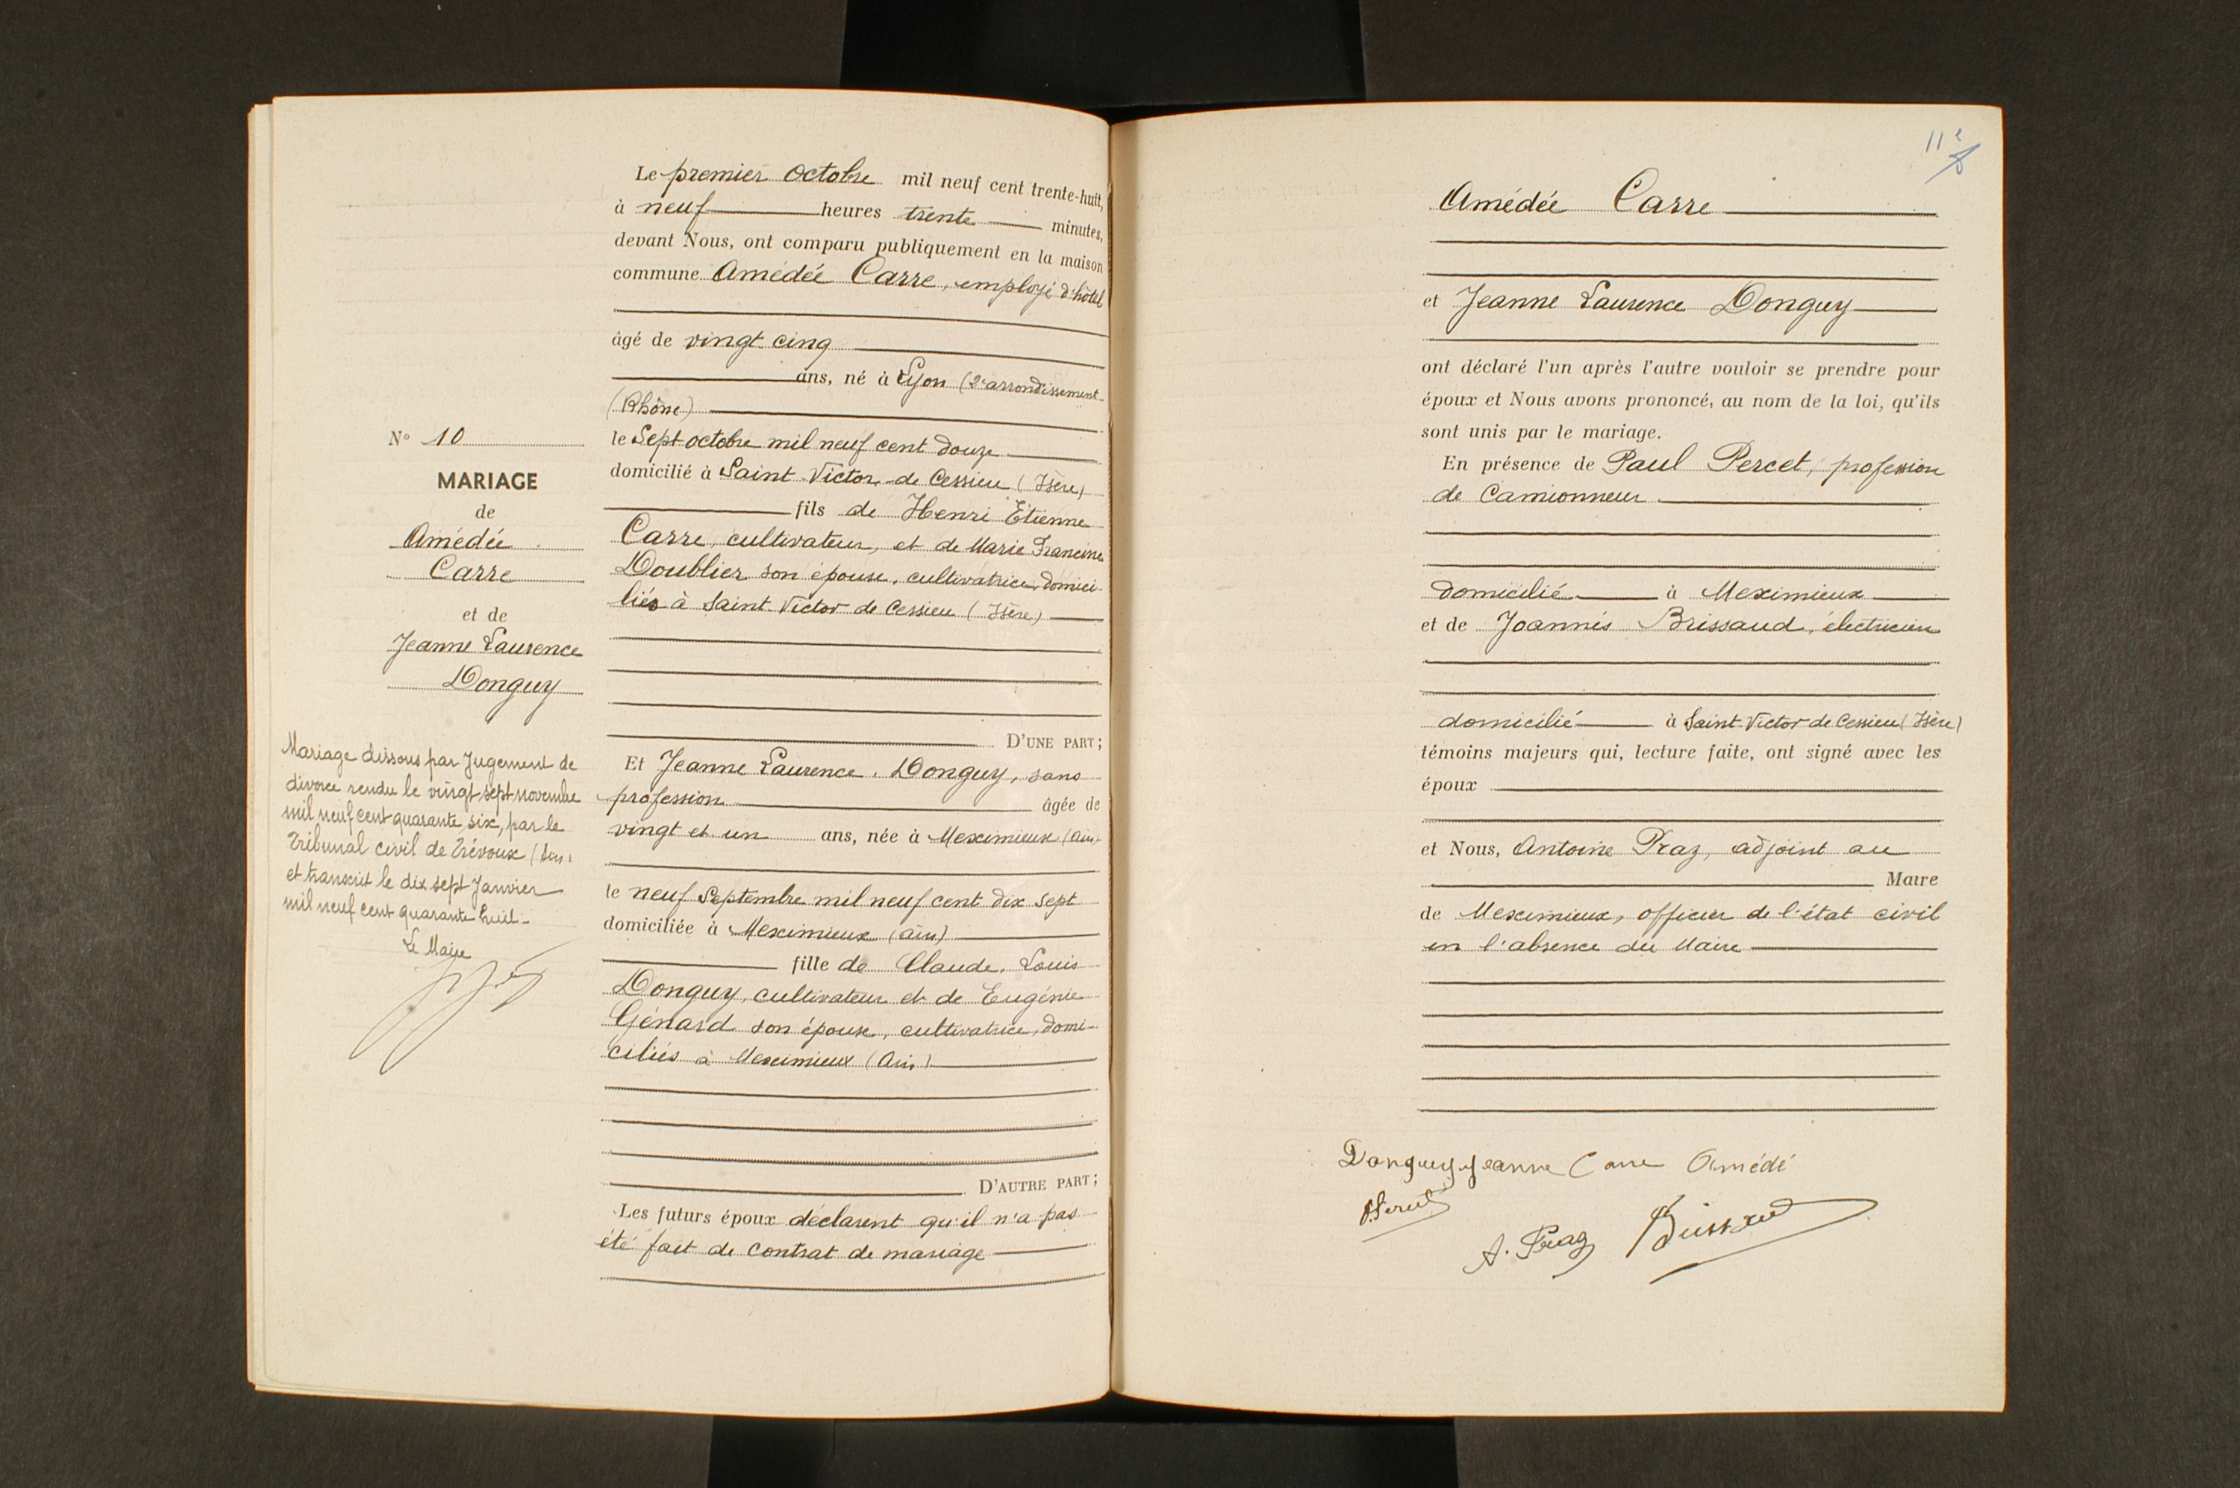 Le premier Octobre mil neuf cent trente-huit,
à neuf heures trente minutes,
devant Nous, ont comparu publiquement en la maison
commune Amédée Carre, employé d'hôtel
âgé de vingt-cinq
ans, né à Lyon (2e arrondissement
(Rhône)
le Sept octobre mil neuf cent douze
domicilié à Saint Victor de Cessieu (Isère)
fils de Henri Etienne
Carre, cultivateur, et de Marie Francine
Doublier son épouse, cultivatrice, domici-
liés à Saint Victor de Cessieu (Isère)
D'UNE PART;
Et Jeanne Laurence Donguy, sans
profession âgée de
vingt et un ans, née à Meximieux (Ain)
le neuf Septembre mil neuf cent dix sept
domiciliée à Meximieux (Ain)
fille de Claude Louis
Donguy, cultivateur et de Eugénie
Génard son épouse, cultivatrice, domi-
ciliés à Meximieux (Ain)
D'AUTRE PART;
Les futurs époux déclarent qu'il n'a pas
été fait de contrat de mariage
N° 10
MARIAGE
de
Amédée
Carre
et de
Jeanne Laurence
Donguy
Mariage dissous par Jugement de
divorce rendu le vingt sept novembre
mil neuf cent quarante six, par le
Tribunal civil de Trévoux (Ain)
et transcrit le dix sept Janvier
mil neuf cent quarante huit -
Le Maire
11
Amédée Carre
et Jeanne Laurence Donguy
ont déclaré l'un après l'autre vouloir se prendre pour
époux et Nous avons prononcé, au nom de la loi, qu'ils
sont unis par le mariage.
En présence de Paul Percet, profession
de Camionneur
domicilié à Meximieux
et de Joannès Brissaud, électricien
domicilié à Saint Victor de Cessieu (Isère)
témoins majeurs qui, lecture faite, ont signé avec les
époux
et Nous, Antoine Praz, adjoint au
Maire
de Meximieux, officier de l'état civil
en l'absence du Maire
Donguy Jeanne Carre Amédé
A. Praz Brissaud